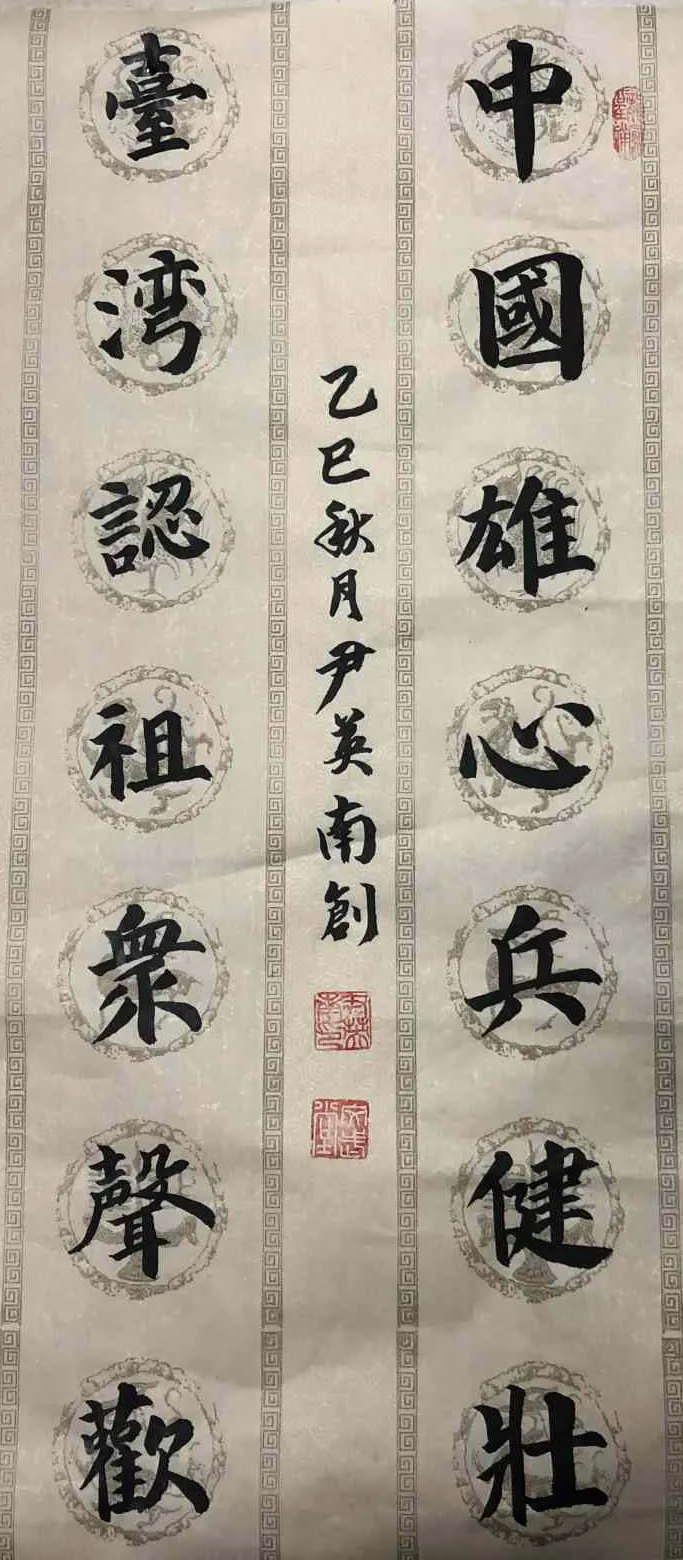 中國雄心兵健壯
臺湾認祖衆聲歡
乙巳秋月尹英南創